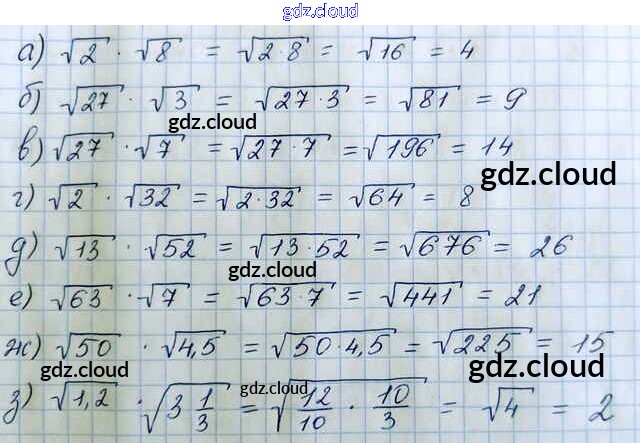 gdz.cloud
а) √2 · √8 = √2·8 = √16 = 4
б) √27 · √3 = √27·3 = √81 = 9
gdz.cloud
в) √27 · √7 = √27·7 = √196 = 14
gdz.cloud
г) √2 · √32 = √2·32 = √64 = 8
д) √13 · √52 = √13·52 = √676 = 26
gdz.cloud
е) √63 · √7 = √63·7 = √441 = 21
ж) √50 · √4,5 = √50·4,5 = √225 = 15
gdz.cloud gdz.cloud gdz.cloud
з) √1,2 · √3 1/3 = √12/10 · 10/3 = √4 = 2